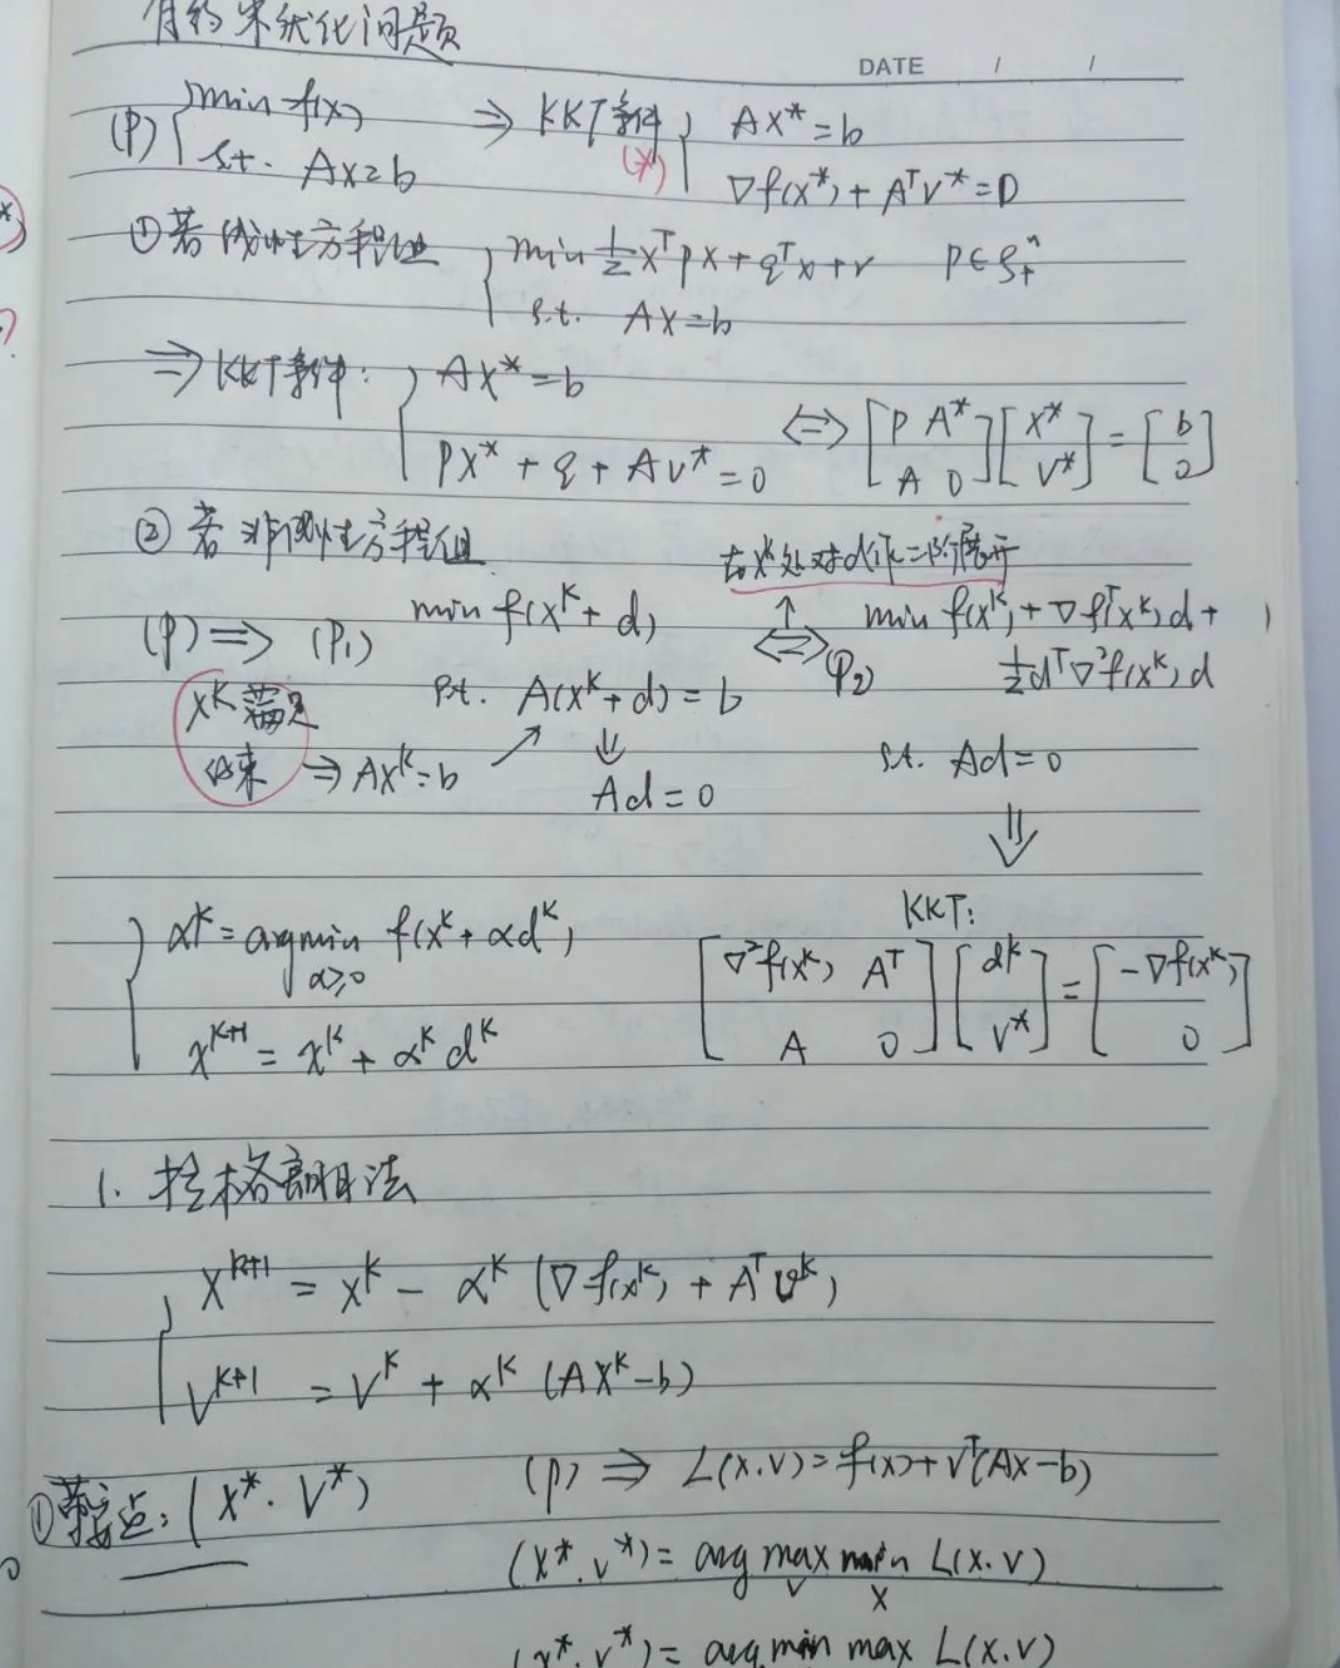 有约束优化问题
DATE / /
(P) { min f(x) ⇒ KKT条件 { Ax* = b
s.t. Ax=b (*) ∇f(x*) + Aᵀv* = 0
①若线性方程组 { min ½xᵀPx + qᵀx + r P∈Sⁿ₊
s.t. Ax=b
⇒ KKT条件: { Ax* = b
Px* + q + Av* = 0 ⇔ [P A*; A 0][x*; v*] = [b; 2]
② 若非线性方程组
在xᵏ处对d作二阶展开
(P) ⇒ (P₁) min f(xᵏ + d) ⇔ (P₂) min f(xᵏ) + ∇fᵀ(xᵏ)d +
½dᵀ∇²f(xᵏ)d
xᵏ满足 s.t. A(xᵏ+d) = b
约束 ⇒ Axᵏ=b ↗ ⇓ s.t. Ad=0
Ad=0
⇓
KKT:
{ αᵏ = argmin f(xᵏ + αdᵏ)
α≥0
xᵏ⁺¹ = xᵏ + αᵏdᵏ
[∇²f(xᵏ) Aᵀ; A 0][dᵏ; v*] = [-∇f(xᵏ); 0]
1. 拉格朗日法
{ xᵏ⁺¹ = xᵏ - αᵏ (∇f(xᵏ) + Aᵀvᵏ)
vᵏ⁺¹ = vᵏ + αᵏ (Axᵏ-b)
①鞍点: (x*. v*) (P) ⇒ L(x.v) = f(x)+vᵀ(Ax-b)
(x*.v*) = arg max min L(x.v)
v x
(x*.v*) = arg min max L(x.v)